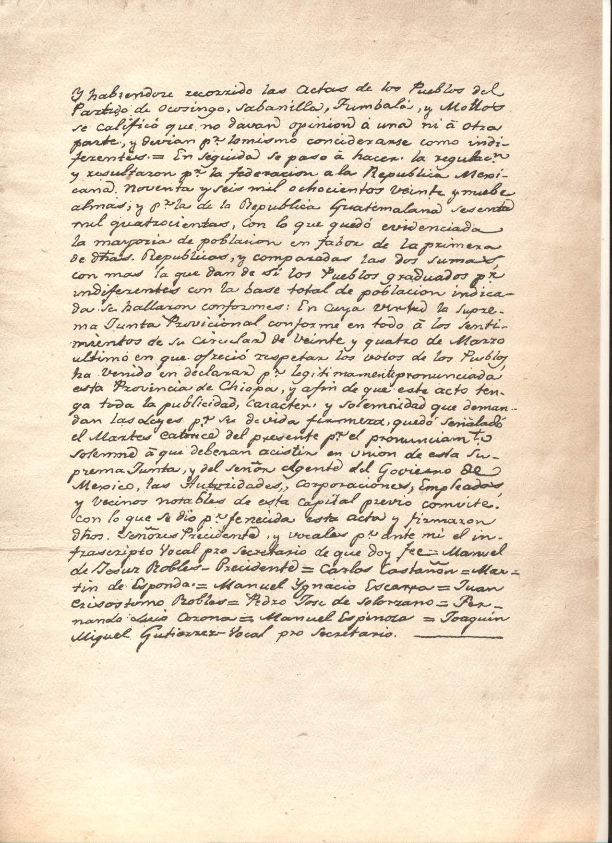 Y habiendose recorrido las Actas de los Pueblos del
Partido de Ocosingo, Sabanilla, Tumbalá, y Mollos
se calificó que no davan opinion á una ni á otra
parte, y devian pr. lo mismo conciderarse como indi-
ferentes. = En seguida se pasó á hacer la regulacn.
y resultaron pr. la federacion a la Republica Mexi-
cana. Noventa y seis mil ochocientos veinte y nuebe
almas, y pr. la de la Republica Guatemalana sesenta
mil quatrocientas, con lo que quedó evidenciada
la mayoria de poblacion en fabor de la primera
de dhas. Republicas, y comparadas las dos sumas,
con mas la que dan de sí los Pueblos graduados pr.
indiferentes con la base total de poblacion indica-
da se hallaron conformes: En cuya virtud la supre-
ma Junta Provicional conforme en todo á los senti-
mientos de su circular de Veinte y quatro de Marzo
ultimo en que ofreció respetar los votos de los Pueblos,
ha venido en declarar pr. legitimamente pronunciada
esta Provincia de Chiapa, y afin de que este acto ten-
ga toda la publicidad, caracter y solemnidad que deman-
dan las Leyes, pr. su devida firmeza, quedó señalado
el Martes catorce del presente pr. el pronunciamto.
solemne á que deberan acistir en union de esta Su-
prema Junta, y del Señor Agente del Govierno de
Mexico, las Autoridades, Corporaciones, Empleados,
y vecinos notables de esta capital previo convite.
con lo que se dio pr. fenecida esta acta y firmaron
dhos. Señores Precidente, y vocales pr. ante mi el in-
frascripto Vocal pro Secretario de que doy fee = Manuel
de Jesus Robles - Precidente = Carlos Castañon = Mar-
tin de Esponda. = Manuel Ygnacio Escarra = Juan
Crisostomo Robles = Pedro Jose de Solorzano = Fer-
nando Luis Corona = Manuel Espinosa = Joaquin
Miguel Gutierrez - Vocal pro Secretario.